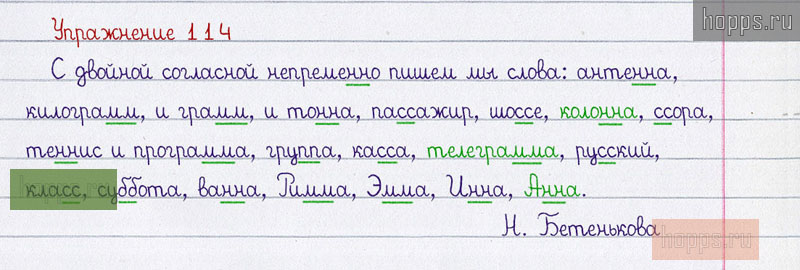 hopps.ru
Упражнение 114
С двойной согласной непременно пишем мы слова: антенна,
килограмм, и грамм, и тонна, пассажир, шоссе, колонна, ссора,
теннис и программа, группа, касса, телеграмма, русский,
класс, суббота, ванна, Римма, Эмма, Инна, Анна.
Н. Бетенькова
hopps.ru